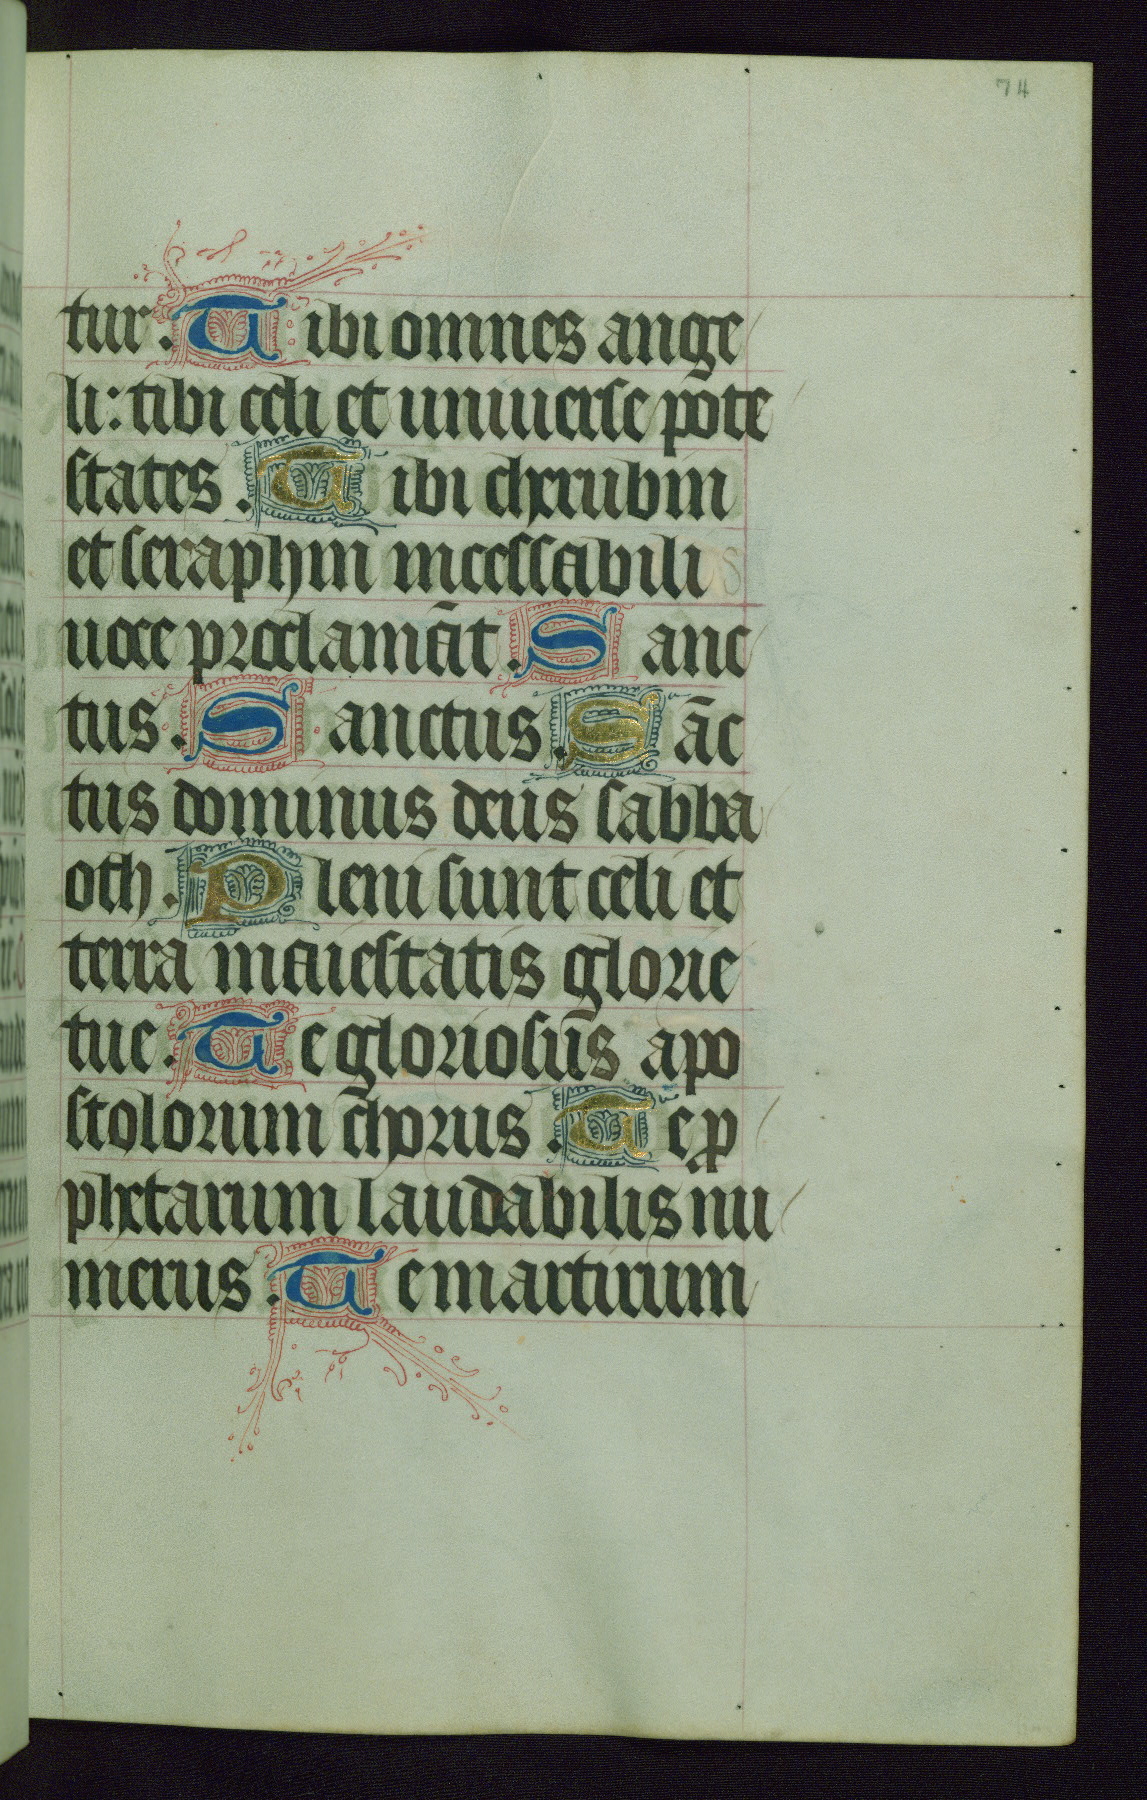 74
tur. Tibi omnes ange
li: tibi celi et universe pote
states. Tibi cherubin
et seraphin incessabili
uoce proclamāt. Sanc
tus. Sanctus. Sāc
tus dominus deus sabba
oth. Pleni sunt celi et
terra maiestatis glorie
tue. Te gloriosus apo
stolorum chorus. Te ꝓ
phetarum laudabilis nu
merus. Te martirum